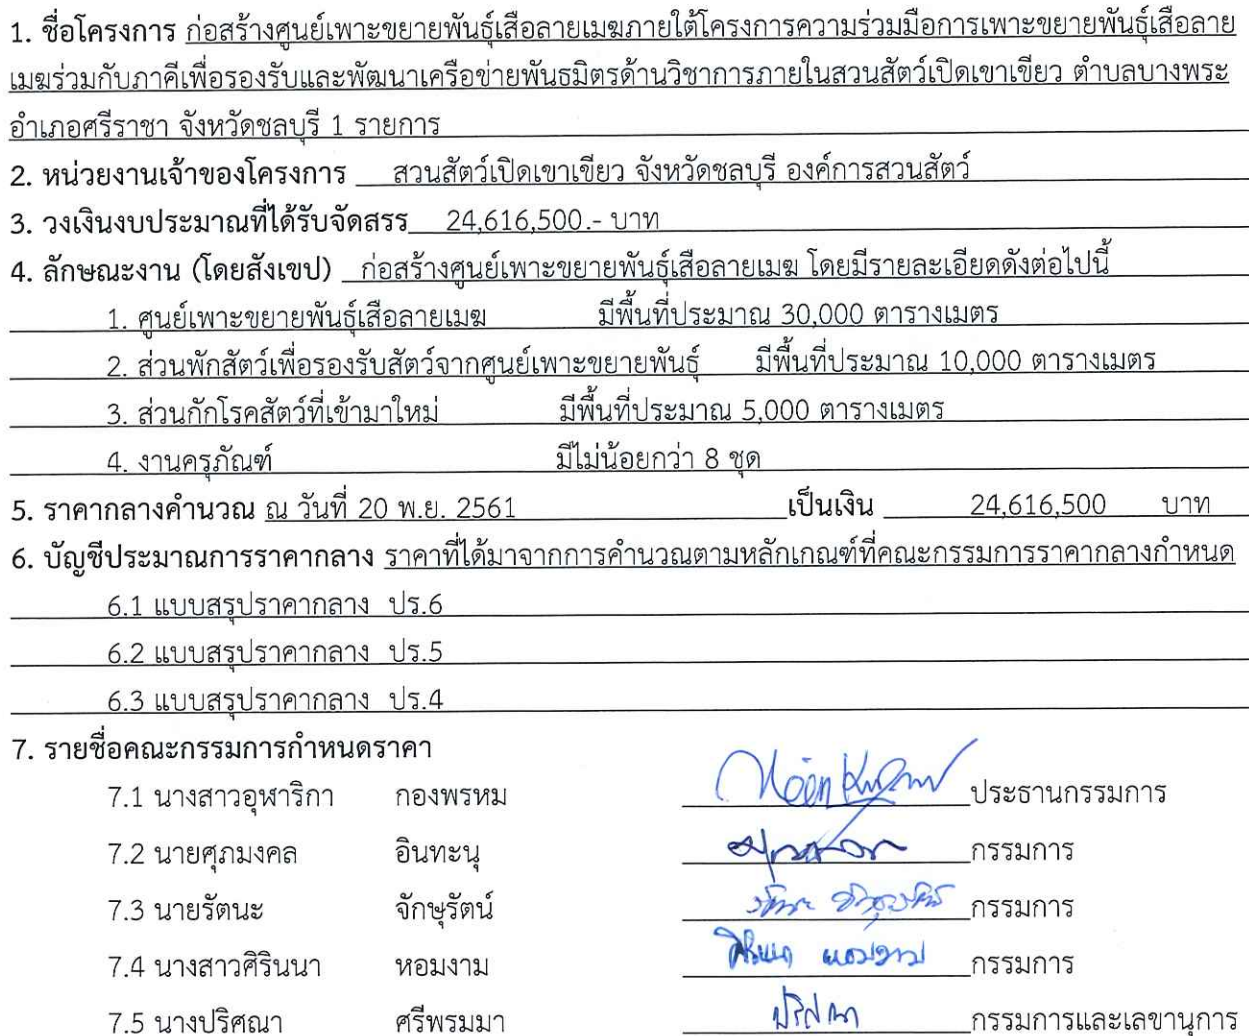 1. ชื่อโครงการ ก่อสร้างศูนย์เพาะขยายพันธุ์เสือลายเมฆภายใต้โครงการความร่วมมือการเพาะขยายพันธุ์เสือลาย
เมฆร่วมกับภาคีเพื่อรองรับและพัฒนาเครือข่ายพันธมิตรด้านวิชาการภายในสวนสัตว์เปิดเขาเขียว ตำบลบางพระ
อำเภอศรีราชา จังหวัดชลบุรี 1 รายการ
2. หน่วยงานเจ้าของโครงการ สวนสัตว์เปิดเขาเขียว จังหวัดชลบุรี องค์การสวนสัตว์
3. วงเงินงบประมาณที่ได้รับจัดสรร 24,616,500.- บาท
4. ลักษณะงาน (โดยสังเขป) ก่อสร้างศูนย์เพาะขยายพันธุ์เสือลายเมฆ โดยมีรายละเอียดดังต่อไปนี้
1. ศูนย์เพาะขยายพันธุ์เสือลายเมฆ มีพื้นที่ประมาณ 30,000 ตารางเมตร
2. ส่วนพักสัตว์เพื่อรองรับสัตว์จากศูนย์เพาะขยายพันธุ์ มีพื้นที่ประมาณ 10,000 ตารางเมตร
3. ส่วนกักโรคสัตว์ที่เข้ามาใหม่ มีพื้นที่ประมาณ 5,000 ตารางเมตร
4. งานครุภัณฑ์ มีไม่น้อยกว่า 8 ชุด
5. ราคากลางคำนวณ ณ วันที่ 20 พ.ย. 2561 เป็นเงิน 24,616,500 บาท
6. บัญชีประมาณการราคากลาง ราคาที่ได้มาจากการคำนวณตามหลักเกณฑ์ที่คณะกรรมการราคากลางกำหนด
6.1 แบบสรุปราคากลาง ปร.6
6.2 แบบสรุปราคากลาง ปร.5
6.3 แบบสรุปราคากลาง ปร.4
7. รายชื่อคณะกรรมการกำหนดราคา
7.1 นางสาวอุฬาริกา กองพรหม ประธานกรรมการ
7.2 นายศุภมงคล อินทะนุ กรรมการ
7.3 นายรัตนะ จักษุรัตน์ รัตนะ จักษุรัตน์ กรรมการ
7.4 นางสาวศิรินนา หอมงาม ศิรินนา หอมงาม กรรมการ
7.5 นางปริศณา ศรีพรมมา ปริศณา กรรมการและเลขานุการ